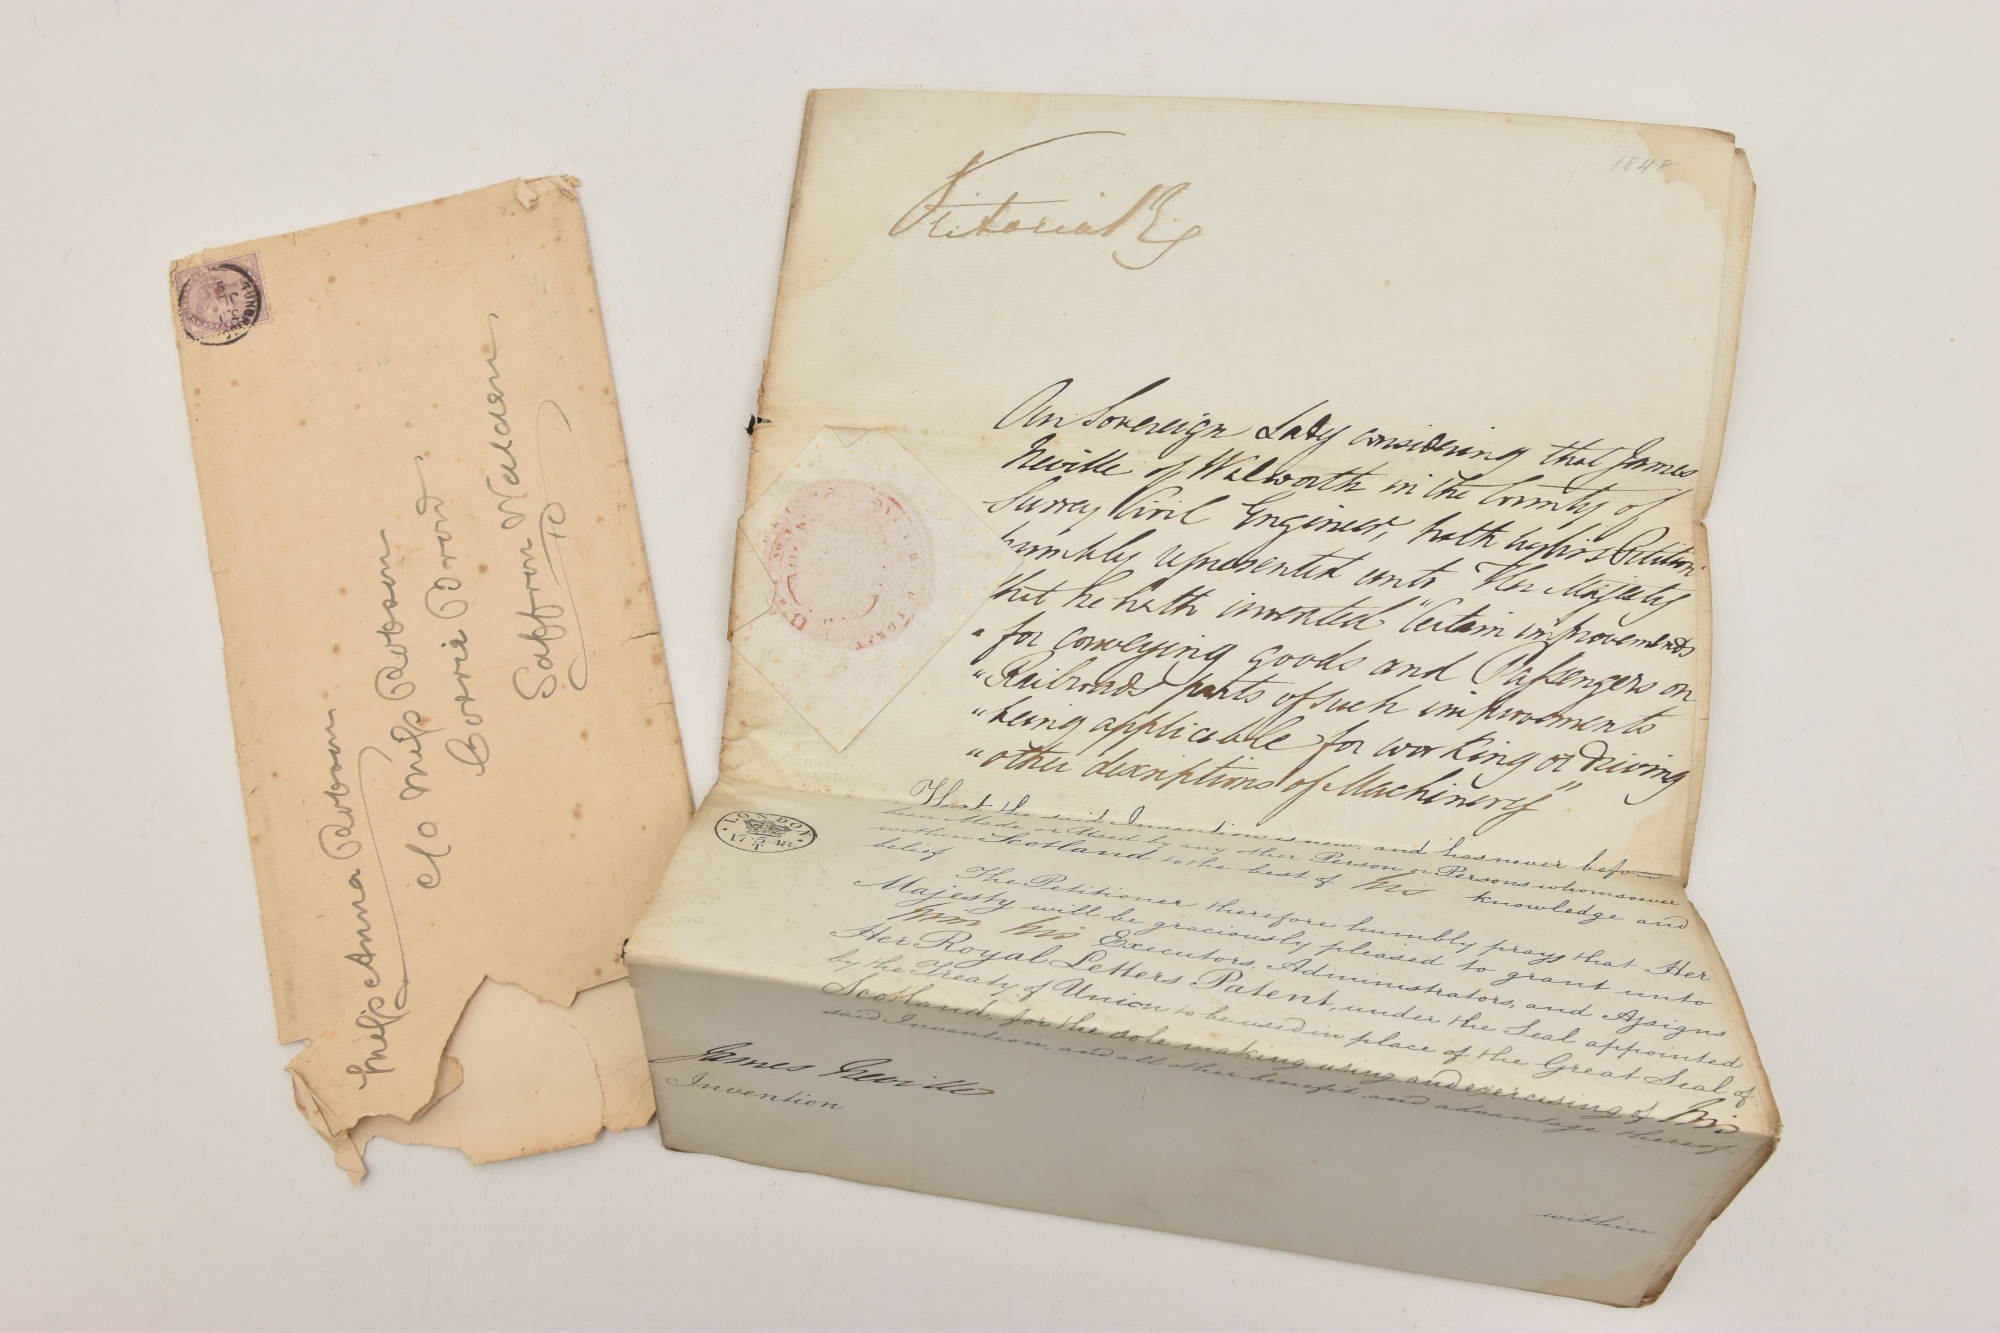 Miss Anna Robson
c/o Miss Robson
Saffron Walden
TUNBRIDGE
JU
Victoria R
1848
Our Sovereign Lady considering that James
Neville of Walworth in the County of
Surrey Civil Engineer, hath by his Petition
humbly represented unto Her Majesty
that he hath invented "Certain improvements
" for conveying goods and Passengers on
" Railroads parts of such improvements
" being applicable for working or driving
" other descriptions of Machinery"
LONDON
That the said Invention is new, and has never before
been Made or Used by any other Person or Persons whomsoever
within Scotland to the best of his knowledge and
belief
The Petitioner therefore humbly prays that Her
Majesty will be graciously pleased to grant unto
him his Executors, Administrators, and Assigns
Her Royal Letters Patent, under the Seal appointed
by the Treaty of Union to be used in place of the Great Seal of
Scotland, for the sole making, using and exercising of his
said Invention, and all other benefit and advantage thereof
James Neville
Invention
within